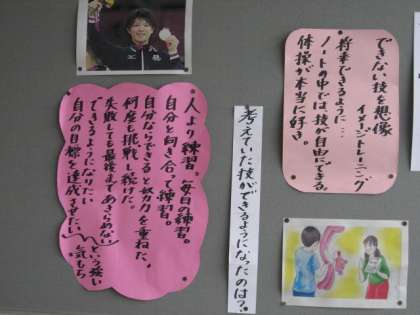 できない技を想像
イメージトレーニング
将来できるように…
ノートの中では、技が自由にできる。
体操が本当に好き。
考えていた技ができるようになったのは?
人より練習。毎日の練習。
自分と向き合って練習。
自分ならできると努力を重ねた。
何度も挑戦し続けた。
失敗しても最後まであきらめない
できるようになりたい
自分の目標を達成させたい
という強い
気もち